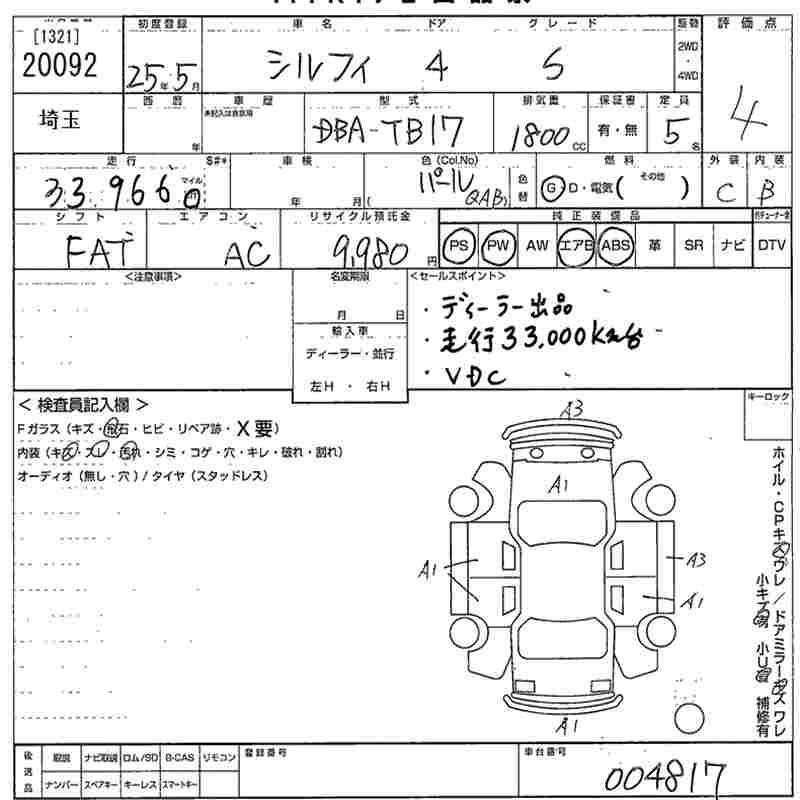 [1321] 初度登録 車名 ドア グレード 駆動 評価点
20092 25年5月 シルフィ 4 S 2WD・4WD 4
埼玉 西暦 年 車歴 ※記入は自家用 型式 DBA-TB17 排気量 1800cc 保証書 有・無 定員 5名
走行 S#* 車検 色(Col.No) 燃料 外装 内装
33,966 マイル 年 月( パール QAB) 色替 G D・電気( その他 ) C B
シフト エアコン リサイクル預託金 純正装備品
FAT AC 9,980円 PS PW AW エアB ABS 革 SR ナビ DTV
<注意事項> 名変期限 <セールスポイント>
月 日
・ディーラー出品
輸入車
・走行33,000Km台
ディーラー・並行
・VDC
左H ・ 右H
< 検査員記入欄 > キーロック
Fガラス(キズ・飛石・ヒビ・リペア跡・X要)
内装(キズ・スレ・汚れ・シミ・コゲ・穴・キレ・破れ・割れ)
オーディオ(無し・穴)/タイヤ(スタッドレス)
A3
A1
A1 A3
A1
A1
ホイル・CPキズワレ/ドアミラーキズワレ
小キズ有 小U有 補修有
後送品 取説 ナビ取説 ロム/SD B-CAS リモコン 登録番号 車台番号
ナンバー スペアキー キーレス スマートキー 004817